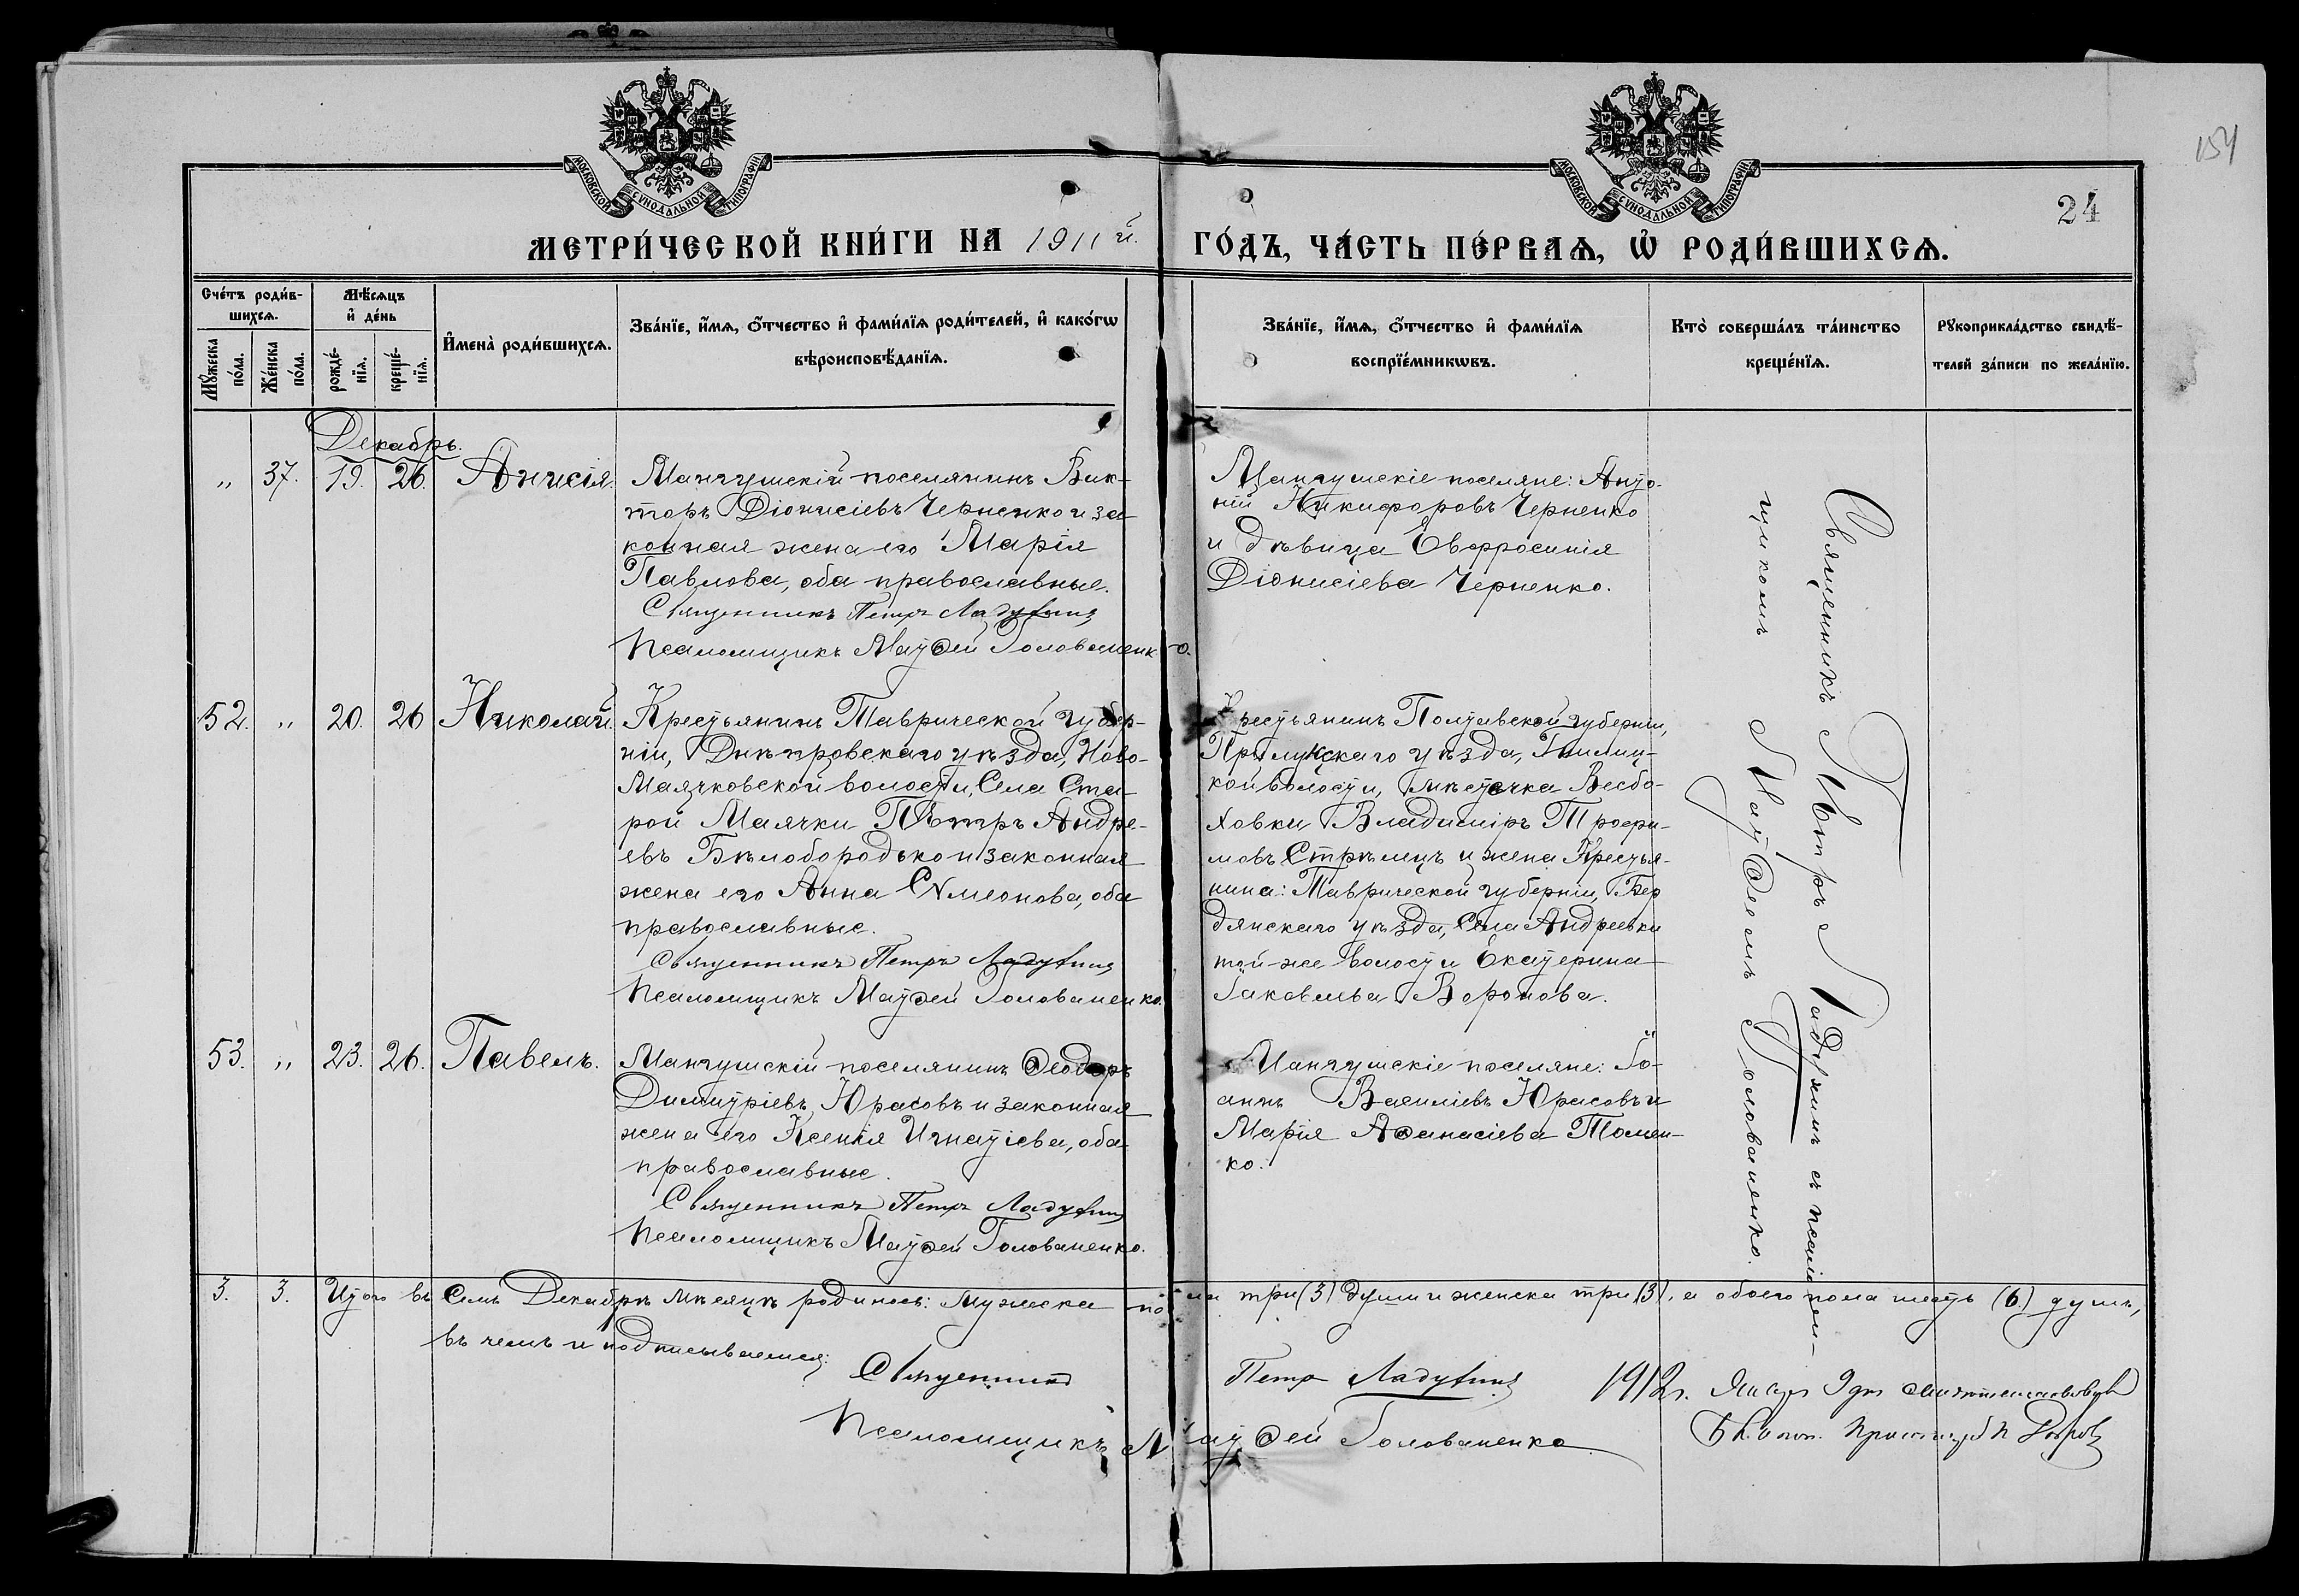 МОСКОВСКОЙ СѴНОДАЛЬНОЙ ТИПОГРАФІИ
МОСКОВСКОЙ СѴНОДАЛЬНОЙ ТИПОГРАФІИ
154
24
МЕТРИ́ЧЕСКОЙ КНИ́ГИ НА 1911 й.
ГО́ДЪ, ЧА́СТЬ ПЕ́РВАѦ, Ѡ҆ РОДИ́ВШИХСѦ.
Сче́тъ роди́в-
шихсѧ.
Мѣ́сѧцъ
и҆ де́нь
Мꙋ́жеска
по́ла.
Же́нска
по́ла.
рожде́-
нїѧ.
креще́-
нїѧ.
И҆мена̀ роди́вшихсѧ.
Зва́нїе, и҆́мѧ, ѻ҆́тчество и҆ фами́лїѧ роди́телей, и҆ како́гѡ
вѣроисповѣ́данїѧ.
Зва́нїе, и҆́мѧ, ѻ҆́тчество и҆ фами́лїѧ
воспрїе́мникѡвъ.
Кто̀ соверша́лъ та́инство
креще́нїѧ.
Рꙋкоприкла́дство свидѣ́-
телей за́писи по жела́нїю.
Декабрь.
„ 37. 19. 26. Анисія.
Мангушскій поселянинъ Вик-
торъ Діонисіевъ Черненко и за-
конная жена его Марія
Павлова, оба православные.
Священникъ Петръ Ладухинъ
Псаломщикъ Матѳей Голованенко.
Мангушскіе поселяне: Анто-
ній Никифоровъ Черненко
и дѣвица Евфросинія
Діонисіева Черненко.
52. „ 20. 26 Николай.
Крестьянинъ Таврической губер-
ніи, Днѣпровскаго уѣзда, Ново-
Маячковской волости, Села Ста-
рой Маячки Петръ Андре-
евъ Бѣлобородько и законная
жена его Анна Сѵмеонова, оба
православные.
Священникъ Петръ Ладухинъ
Псаломщикъ Матѳей Голованенко.
Крестьянинъ Полтавской губерніи,
Прилукскаго уѣзда,
кой волости, мѣстечка
Владиміръ Трофи-
мовъ Стрѣлецъ и жена Крестья-
нина: Таврической губерніи, Бер
дянскаго уѣзда, Села Андреевки
той-же волости Екатерина
Іаковлева Воронова.
53. „ 23. 26. Павелъ.
Мангушскій поселянинъ Ѳеодоръ
Димитріевъ Юрасовъ и законная
жена его Ксенія Игнатіева, оба
православные.
Священникъ Петръ Ладухинъ
Псаломщикъ Матѳей Голованенко.
Мангушскіе поселяне: Іо-
аннъ Василіевъ Юрасовъ и
Марія Аѳанасіева Томен-
ко.
Священникъ Петръ Ладухинъ съ псалом-
щикомъ Матѳеемъ Голованенко.
3. 3. Итого въ семъ Декабрѣ мѣсяцѣ родилось: мужеска пола три (3) души и женска три (3), а обоего пола шесть (6) душъ,
въ чемъ и подписываемся:
Священникъ Петръ Ладухинъ
Псаломщикъ Матѳей Голованенко.
1912 г.